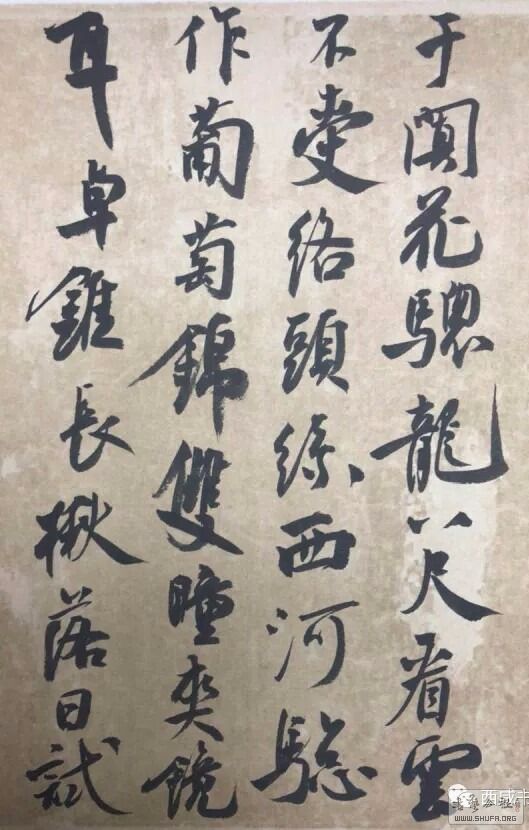 于闐花驄龍八尺看雲
不受絡頭絲西河驄
作葡萄錦雙瞳夾鏡
耳卓錐長楸落日試
西咸
书艺公社
WWW.SHUFA.ORG